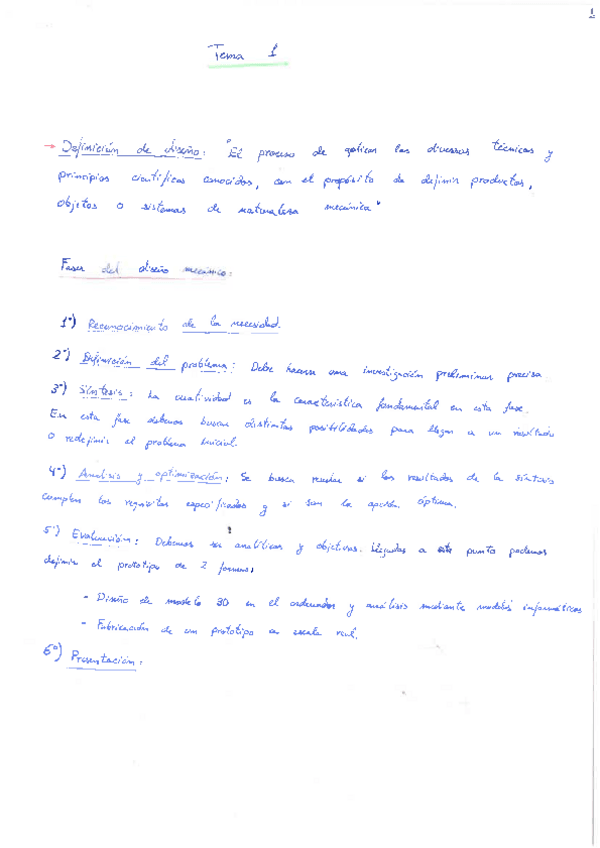 1
Tema 1
→ Definición de diseño: "El proceso de aplicar las diversas técnicas y
principios científicos conocidos, con el propósito de definir productos,
objetos o sistemas de naturaleza mecánica"
Fases del diseño mecánico:
1º) Reconocimiento de la necesidad.
2º) Definición del problema: Debe hacerse una investigación preliminar precisa.
3º) Síntesis: La creatividad es la característica fundamental en esta fase.
En esta fase debemos buscar distintas posibilidades para llegar a un resultado
o redefinir el problema inicial.
4º) Análisis y optimización: Se busca revelar si los resultados de la síntesis
cumplen los requisitos especificados y si son la opción óptima.
5º) Evaluación: Debemos ser analíticos y objetivos. Llegados a este punto podemos
definir el prototipo de 2 formas:
- Diseño de modelo 3D en el ordenador y análisis mediante modelos informáticos
- Fabricación de un prototipo a escala real.
6º) Presentación: